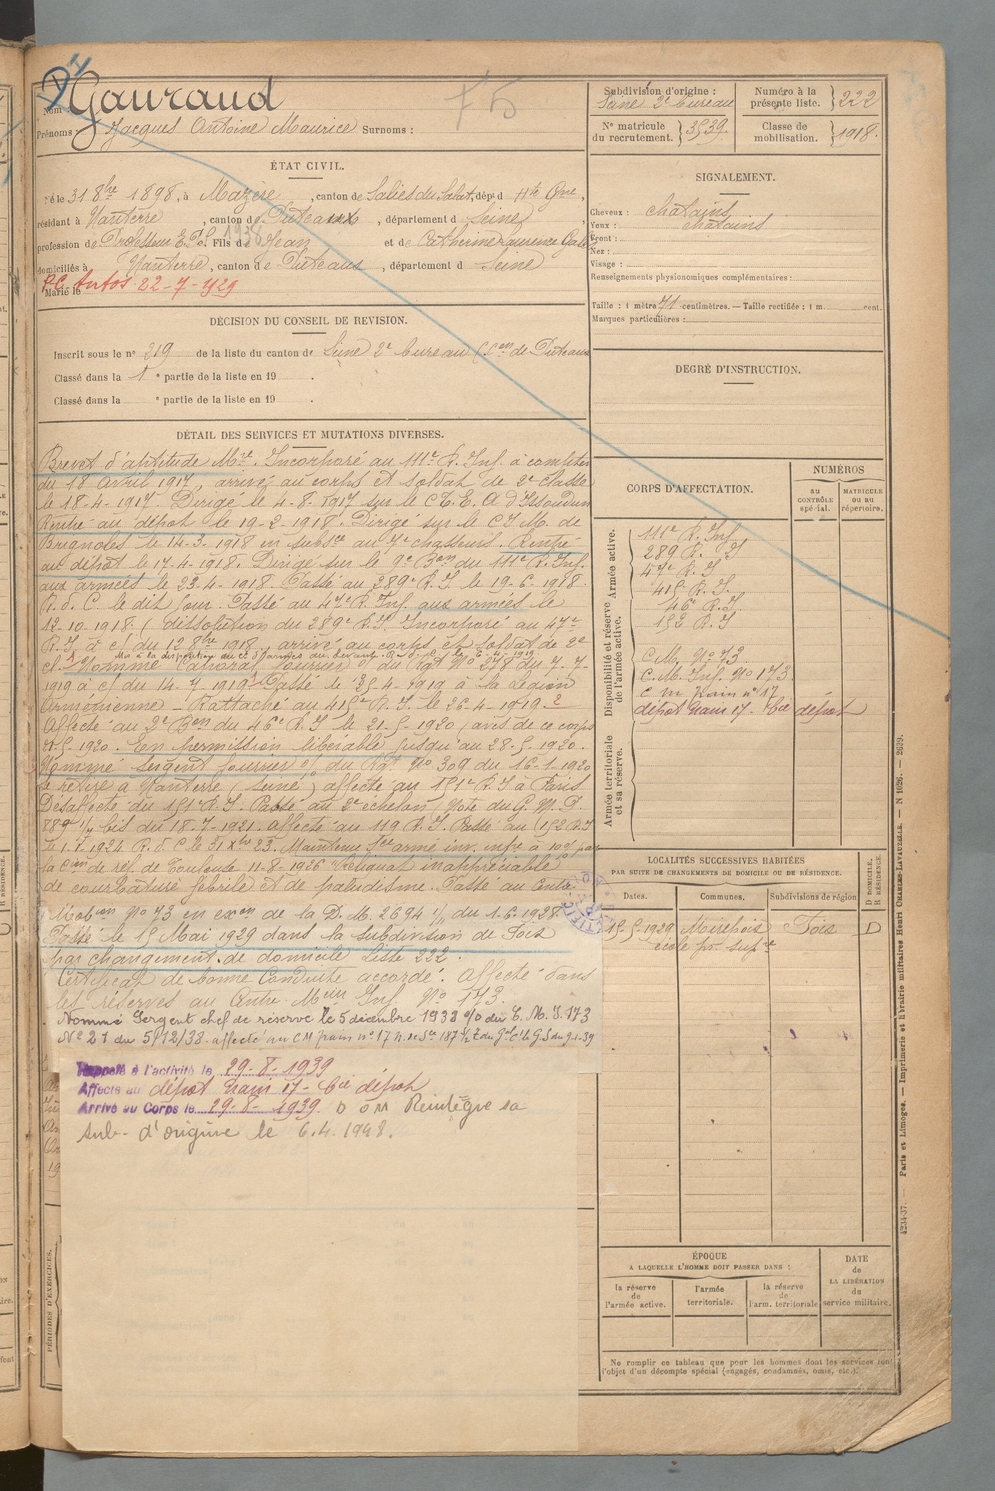 Nom : Gauraud
Prénoms : Jacques Antoine Maurice Surnoms :
75
Subdivision d'origine : Seine 2e bureau
Numéro à la présente liste. 222
N° matricule du recrutement. 3539.
Classe de mobilisation. 1918.
ÉTAT CIVIL.
Né le 31 8bre 1898, à Mazère, canton de Salies du Salat, dép. d Hte Gne,
résidant à Nanterre, canton de Puteaux, département d Seine,
profession de Professeur E.P.S. Fils de Jean et de Catherine Laurence
domiciliés à Nanterre, canton de Puteaux, département d Seine
P.C. Autos 22-7-1929
Marié le
DÉCISION DU CONSEIL DE REVISION.
Inscrit sous le n° 219 de la liste du canton de Seine 2e bureau (Con de Puteaux
Classé dans la 1e partie de la liste en 19 .
Classé dans la e partie de la liste en 19 .
SIGNALEMENT.
Cheveux : châtains
Yeux : châtains
Front :
Nez :
Visage :
Renseignements physionomiques complémentaires :
Taille : 1 mètre 71 centimètres. — Taille rectifiée : 1 m. cent.
Marques particulières :
DEGRÉ D'INSTRUCTION.
DÉTAIL DES SERVICES ET MUTATIONS DIVERSES.
Brevet d'aptitude Mre. Incorporé au 111e R. Inf. à compter
du 18 Avril 1917, arrivé au corps et soldat de 2e classe
le 18-4-1917. Dirigé le 4-8-1917 sur le C.E.A. d'Issoudun
Rentré au dépôt le 19-2-1918. Dirigé sur le C I M. de
Brignoles le 14-3-1918 en subsce au 7e chasseurs. Rentré
au dépôt le 17-4-1918. Dirigé sur le 9e Bon du 111e R. Inf.
aux armées le 23-4-1918. Passé au 289e R.I. le 19-6-1918
R.d.C. le dit jour. Passé au 47e R. Inf. aux armées le
12-10-1918. (dissolution du 289e R.I. Incorporé au 47e
R.I. à c/ du 12 8bre 1918, arrivé au corps et soldat de 2e
cl. Nommé Caporal fourrier du Rgt No 278 du 7-7-
1919 à c/ du 14-7-1919. Passé le 25-4-1919 à la Légion
Arménienne - Rattaché au 415e R.I. le 26-4-1919. 2
Affecté au 3e Bon du 46e R.I le 21-5-1920 (avis de ce corps
21-5-1920. En permission libérable jusqu'au 28-5-1920.
Nommé sergent fourrier o/ du Rgt No 309 du 16-1-1920
Se retire à Nanterre (Seine) affecté au 151e R.I à Paris
Désafecté du 151e R.I. Passé au 2e échelon (Note du G.M.P.
bis du 18-7-1921. affecté au 119 R.I. Passé au 152 R.I
le 1-1-1924 R.d.C le 31 Xbre 23. Maintenu Sce armé inv. infre à 10% par
la Con de réf. de Toulouse 11-8-1926 Reliquat inappréciable
de courbature fébrile et de paludisme. Passé au Centre
Mobon No 73 en exon de la D.M. 2694 1/1 du 1.6.1928
Passé le 15 Mai 1929 dans la subdivision de Foix
par changement de domicile liste 222.
Certificat de bonne Conduite accordé. Affecté dans
les réserves au Centre Mon Inf. No 173.
Nommé Sergent chef de réserve le 5 décembre 1938 o/o du C.M.I.173
No 21 du 5/12/38. affecté au CM train no 17
Rappelé à l'activité le 29-8-1939
Affecté au dépôt train 17 - 6ie dépôt
Arrivé au Corps le 29-8-1939. D O M Réintègre sa
sub- d'origine le 6.4.1948.
CORPS D'AFFECTATION.
NUMÉROS
AU CONTRÔLE spécial.
MATRICULE ou au répertoire.
Armée active.
Disponibilité et réserve de l'armée active.
Armée territoriale et sa réserve.
111e R. Inf
289 R. I
47e R. I
415 R. I.
46e R. I
152 R. I
C.M. No 73
C.M. Inf. No 173
c m train no 17
dépôt train 17 - 6ie dépôt
LOCALITÉS SUCCESSIVES HABITÉES
PAR SUITE DE CHANGEMENTS DE DOMICILE OU DE RÉSIDENCE.
Dates. Communes. Subdivisions de région D DOMICILE. R RÉSIDENCE.
15-5-1929 Mirepoix Foix D
école pr. supre
ÉPOQUE
A LAQUELLE L'HOMME DOIT PASSER DANS :
la réserve de l'armée active.
l'armée territoriale.
la réserve de l'arm. territoriale
DATE de LA LIBÉRATION du service militaire.
Ne remplir ce tableau que pour les hommes dont les services font
l'objet d'un décompte spécial (engagés, condamnés, omis, etc.).
PÉRIODES D'EXERCICES.
4234-37. — Paris et Limoges. — Imprimerie et librairie militaires Henri CHARLES-LAVAUZELLE. — N 1026. — 2639.